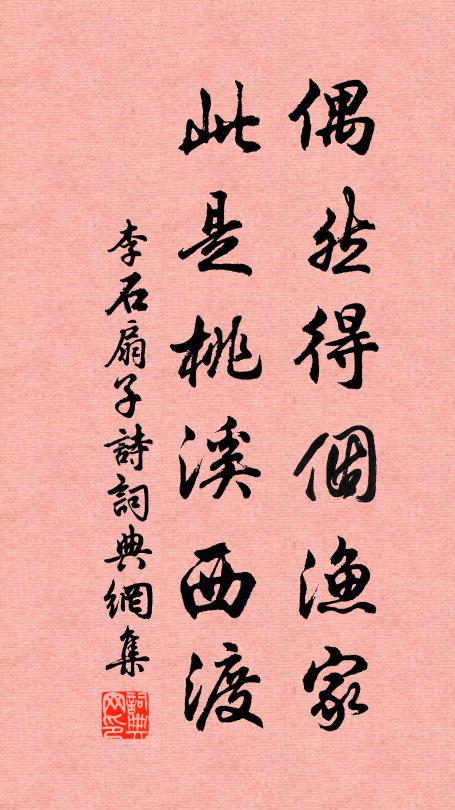 偶然得個漁家
此是桃溪西渡
李石扇子詩詞典網集
詞典网印